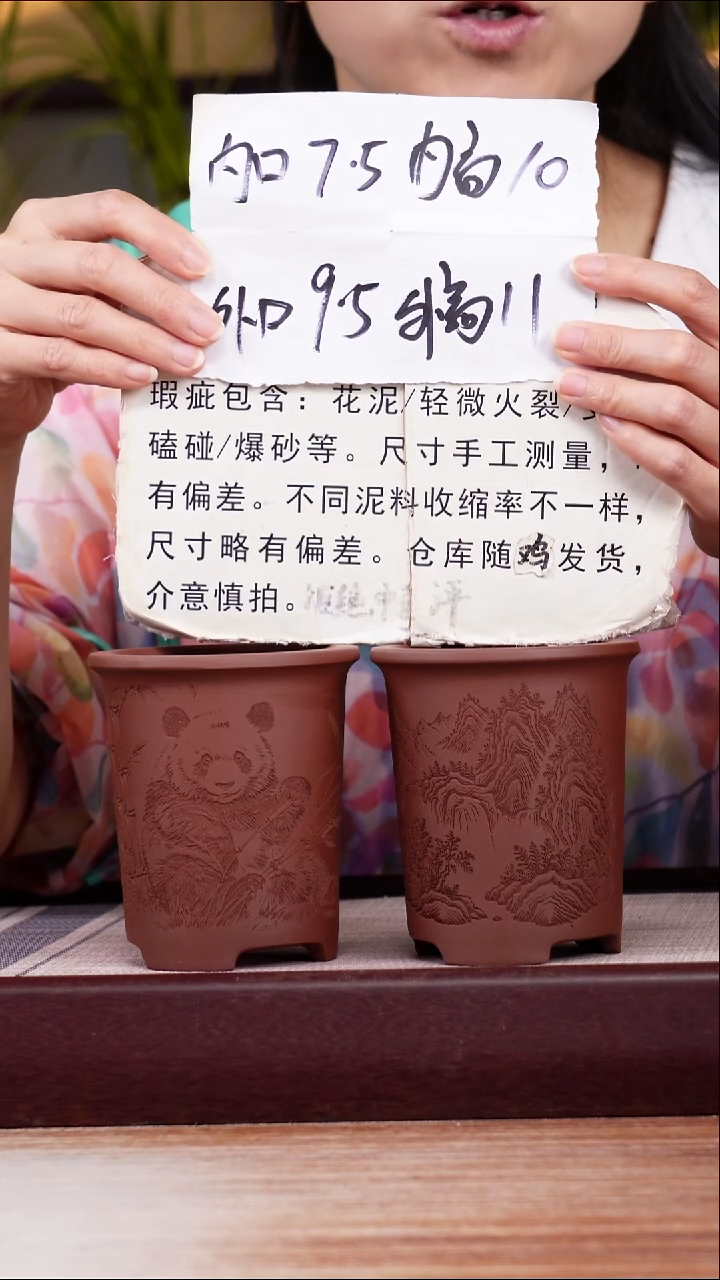 内口7.5内高10
外口9.5外高11
瑕疵包含：花泥/轻微火裂/
磕碰/爆砂等。尺寸手工测量，
有偏差。不同泥料收缩率不一样，
尺寸略有偏差。仓库随鸡发货，
介意慎拍。